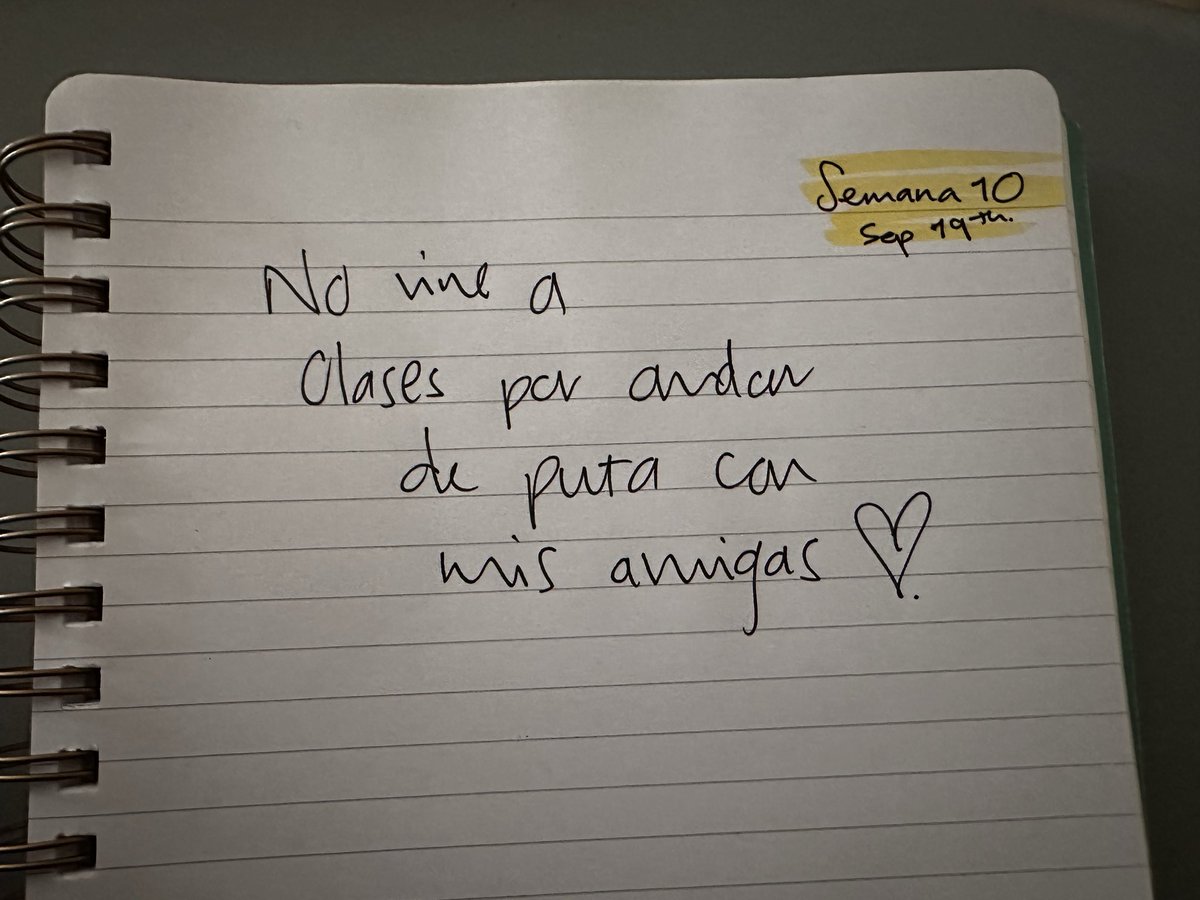 Semana 10
Sep 19th.
No vine a
Clases por andar
de puta con
mis amigas ♡.